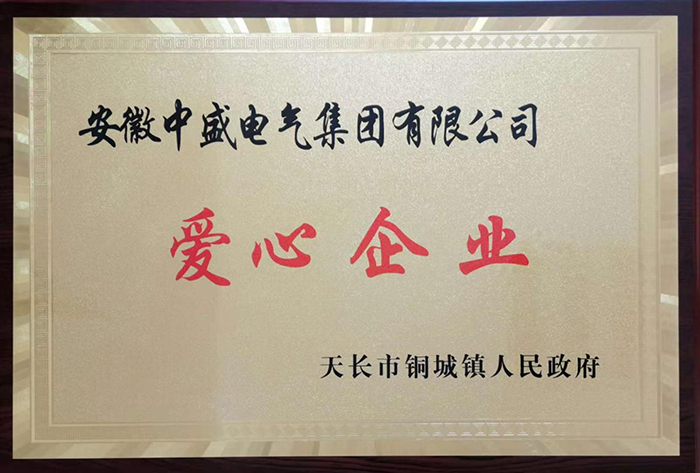 安徽中盛电气集团有限公司
爱心企业
天长市铜城镇人民政府